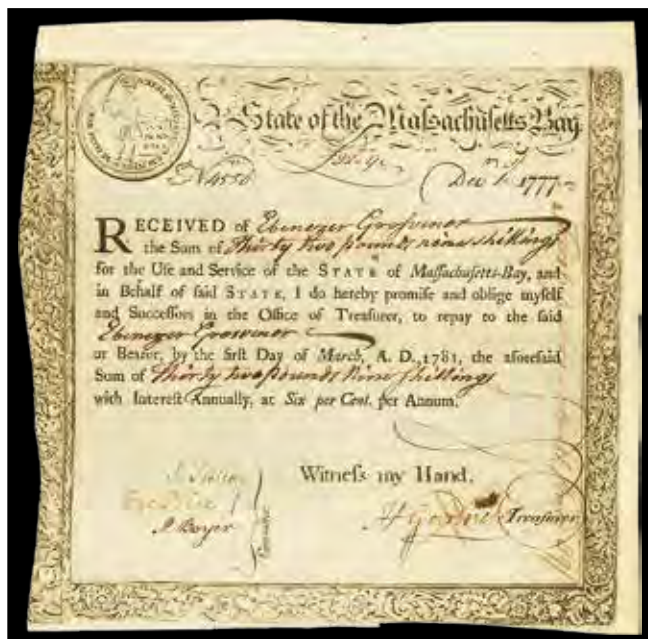 State of the Massachusetts Bay.
N 4556
Dec 1. 1777
RECEIVED of Ebenezer Grosvenor
the Sum of Thirty two pounds nine shillings
for the Uſe and Service of the STATE of Maſſachuſetts-Bay, and
in Behalf of ſaid STATE, I do hereby promiſe and oblige myſelf
and Succeſſors in the Office of Treaſurer, to repay to the ſaid
Ebenezer Grosvenor
or Bearer, by the firſt Day of March, A. D., 1781, the aforeſaid
Sum of Thirty two pounds Nine ſhillings
with Intereſt Annually, at Six per Cent. per Annum.
Witneſs my Hand.
Treaſurer